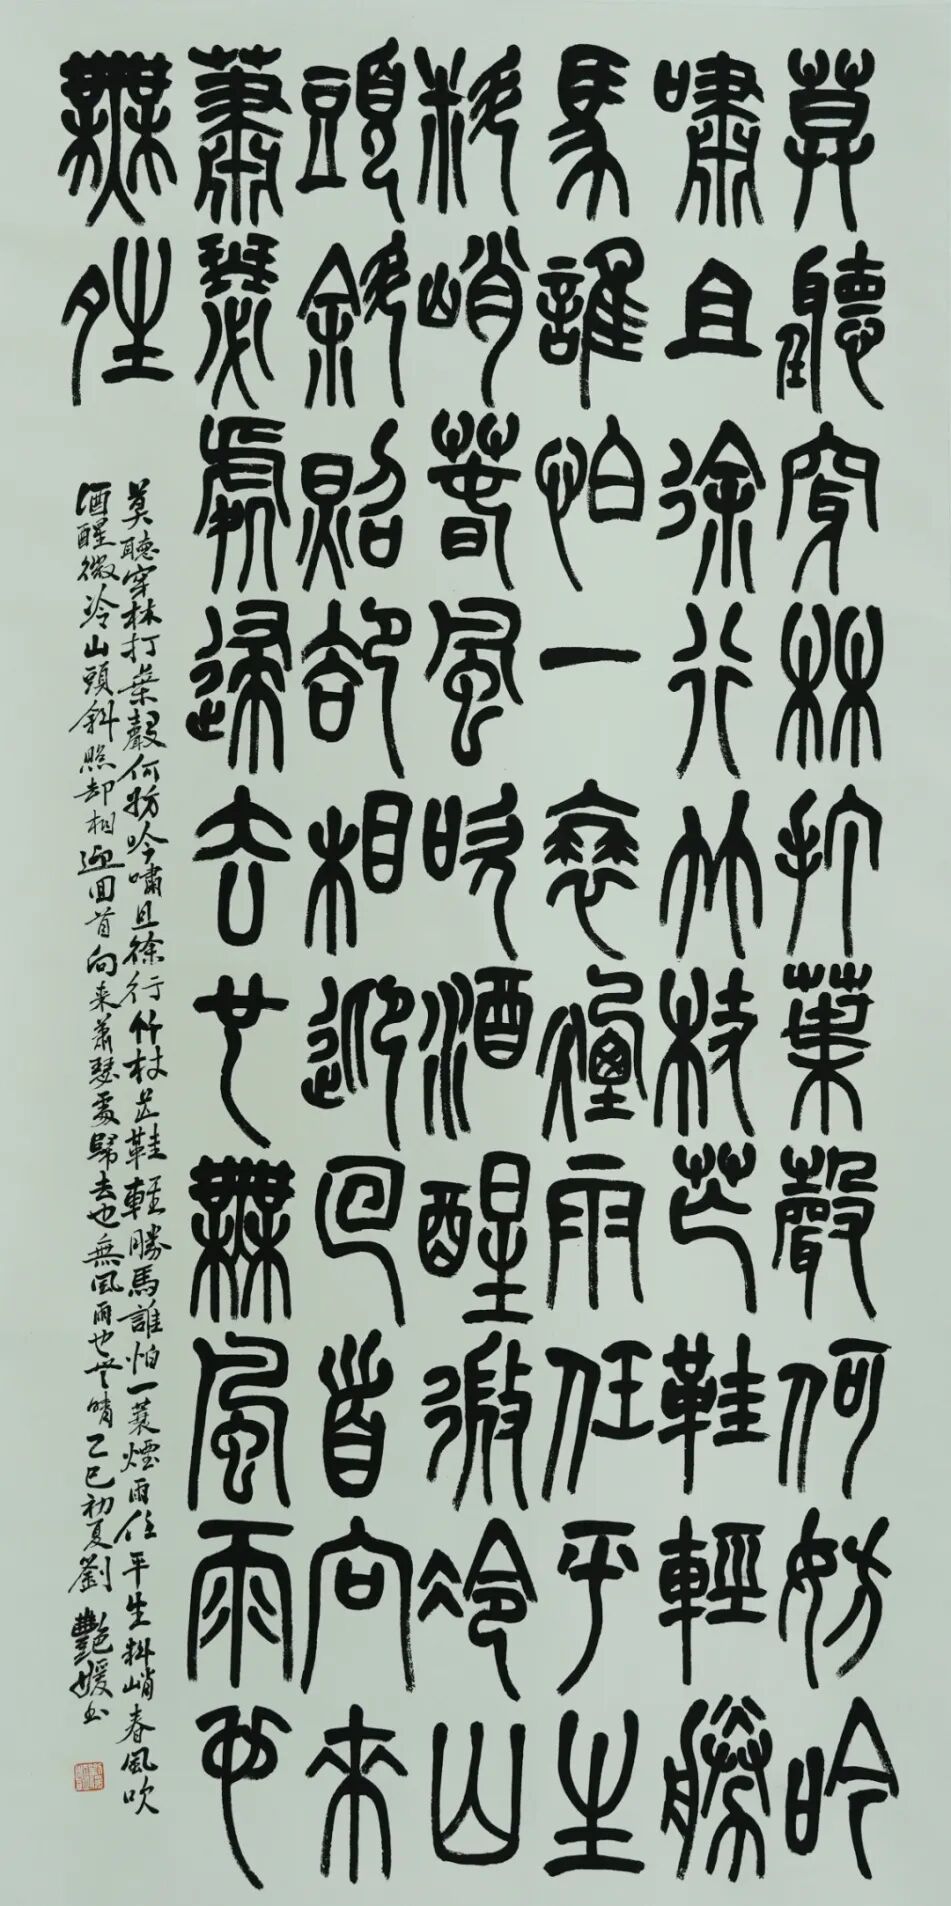 莫聽穿林打葉聲何妨吟
嘯且徐行竹杖芒鞋輕勝
馬誰怕一蓑煙雨任平生
料峭春風吹酒醒微冷山
頭斜照却相迎回首向來
蕭瑟處歸去也無風雨也
無晴
莫聽穿林打葉聲何妨吟嘯且徐行竹杖芒鞋輕勝馬誰怕一蓑煙雨任平生料峭春風吹
酒醒微冷山頭斜照却相迎回首向来蕭瑟處歸去也無風雨也无晴乙巳初夏劉艷媛书